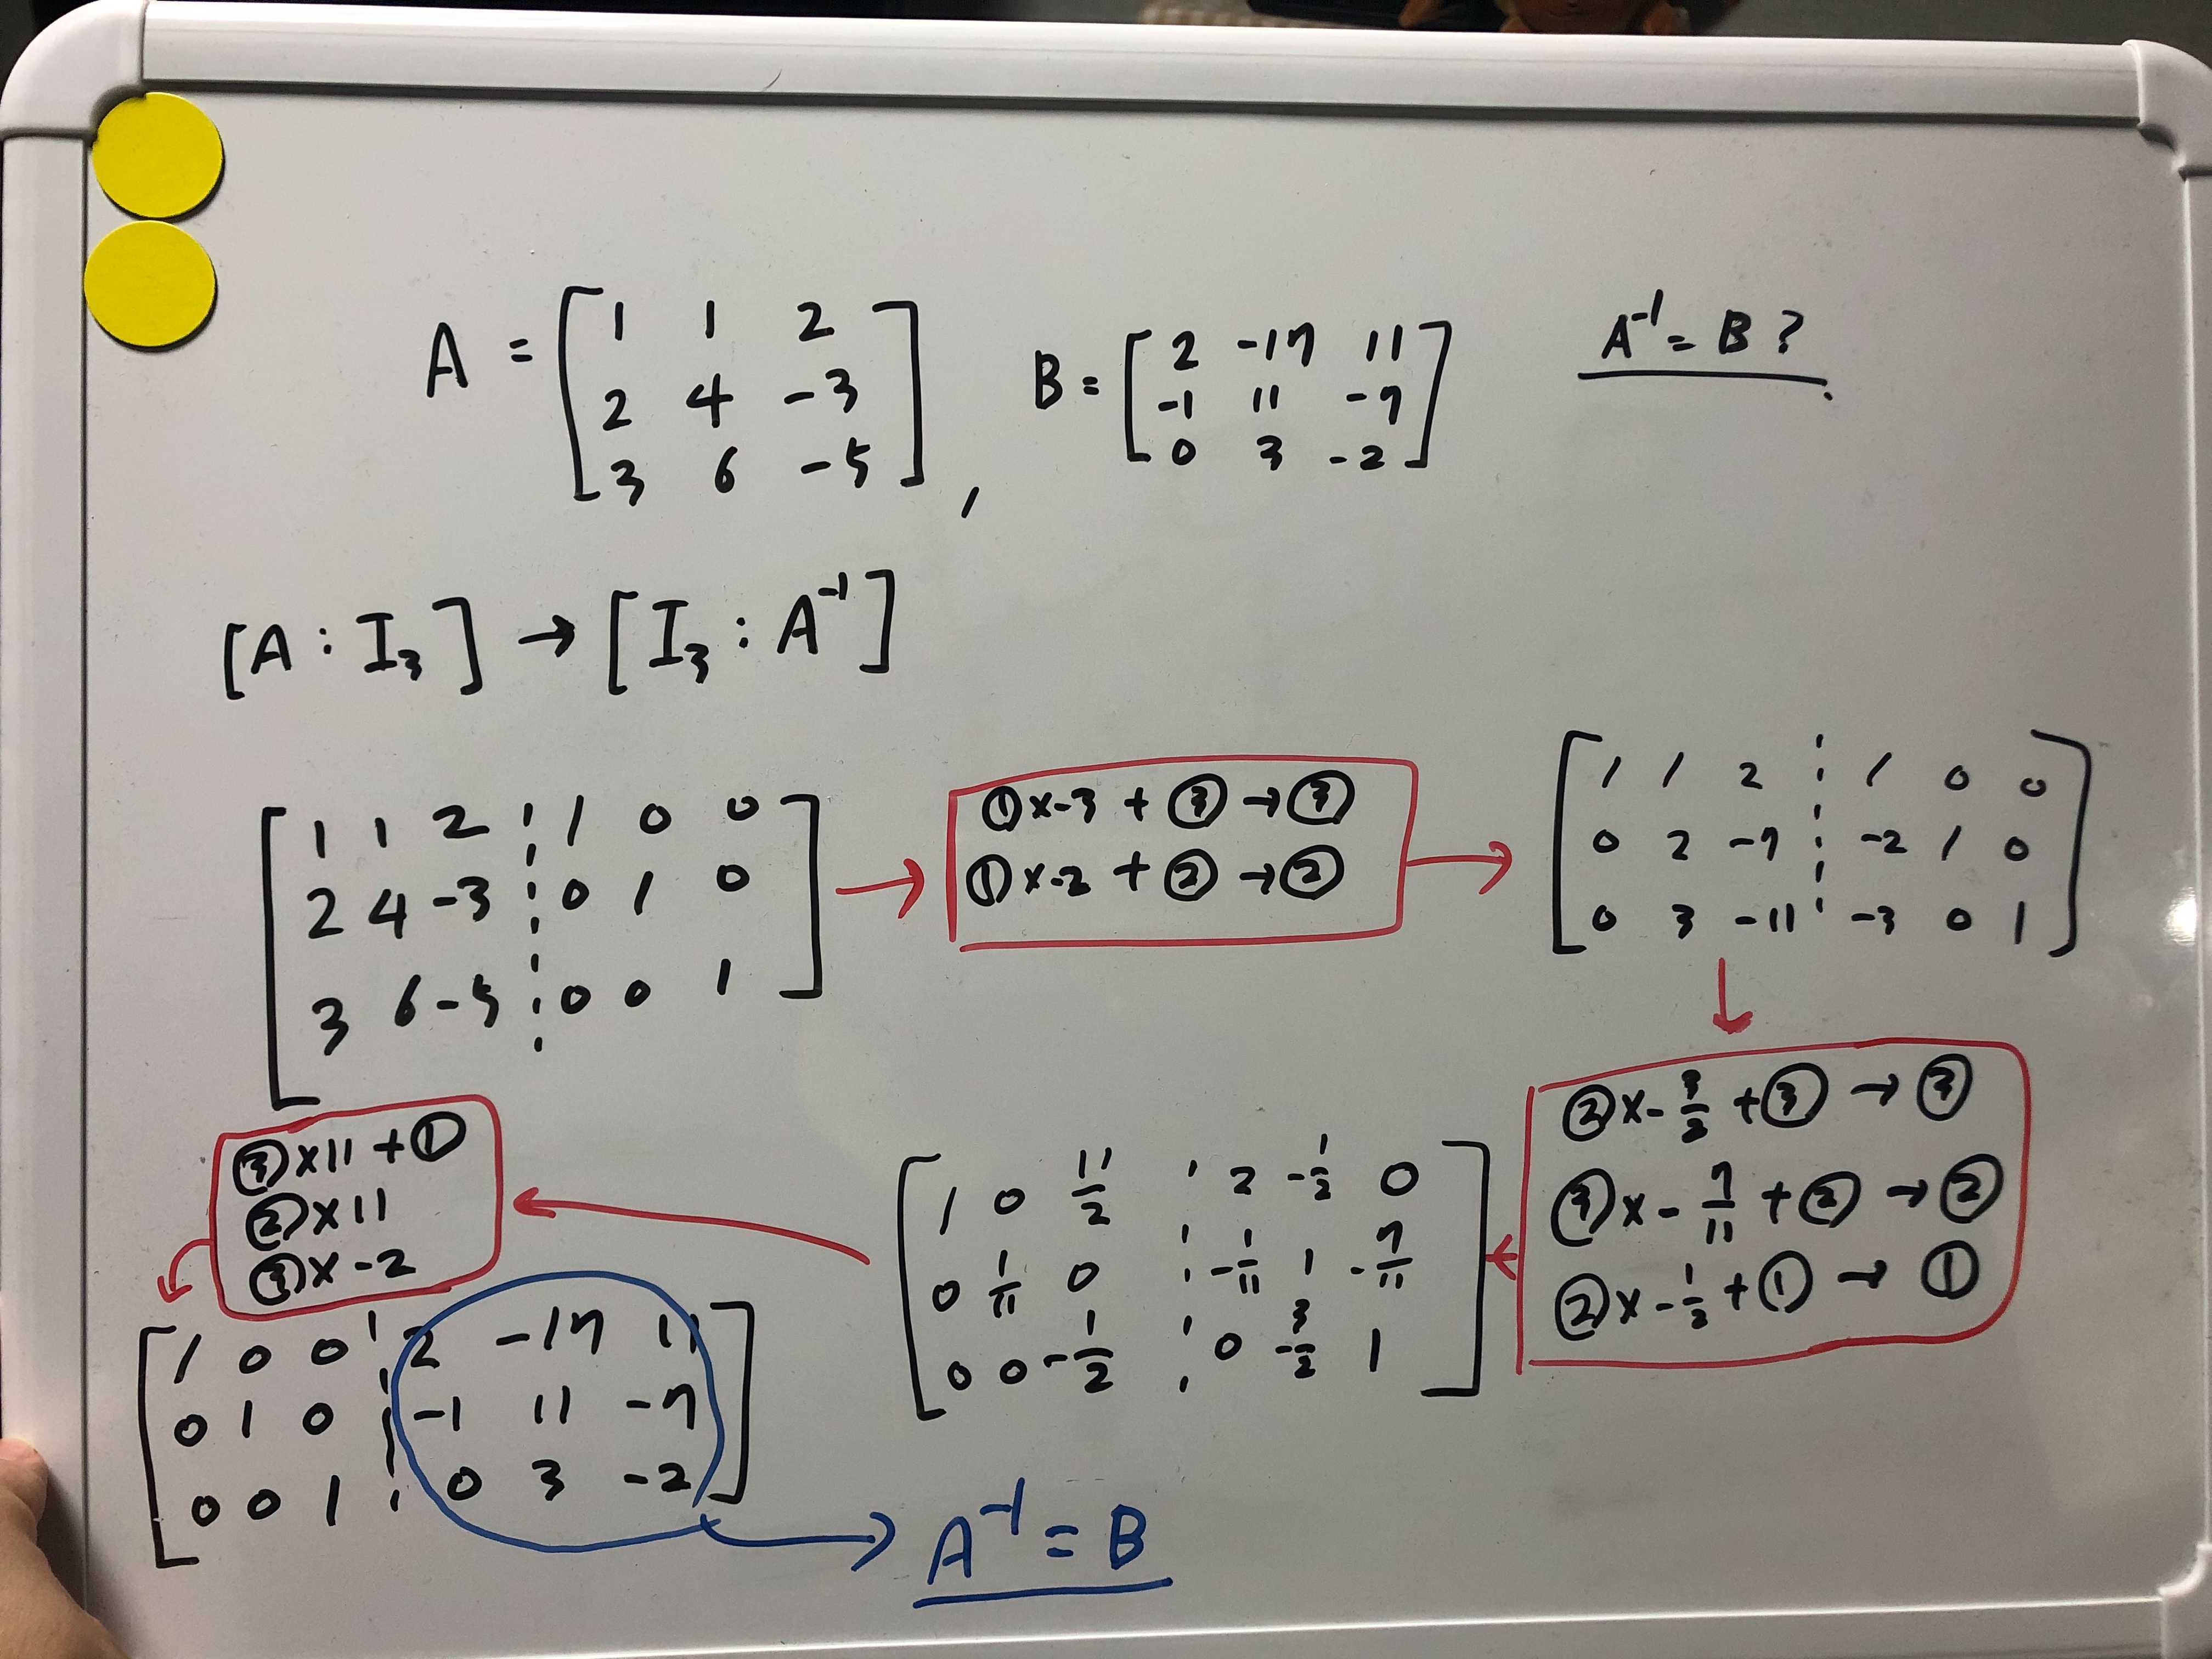 A = [ 1 1 2
2 4 -3
3 6 -5 ] ,
B = [ 2 -17 11
-1 11 -7
0 3 -2 ]
A⁻¹ = B ?
[A : I₃] → [I₃ : A⁻¹]
[ 1 1 2 ¦ 1 0 0
2 4 -3 ¦ 0 1 0
3 6 -5 ¦ 0 0 1 ]
→
①x-3 + ③ → ③
①x-2 + ② → ②
→
[ 1 1 2 ¦ 1 0 0
0 2 -7 ¦ -2 1 0
0 3 -11 ¦ -3 0 1 ]
↓
②x-3/2 + ③ → ③
③x-7/11 + ② → ②
②x-1/2 + ① → ①
←
[ 1 0 11/2 ¦ 2 -1/2 0
0 1/11 0 ¦ -1/11 1 -7/11
0 0 -1/2 ¦ 0 -3/2 1 ]
←
③x11 + ①
②x11
③x-2
[ 1 0 0 ¦ 2 -17 11
0 1 0 ¦ -1 11 -7
0 0 1 ¦ 0 3 -2 ]
→ A⁻¹ = B